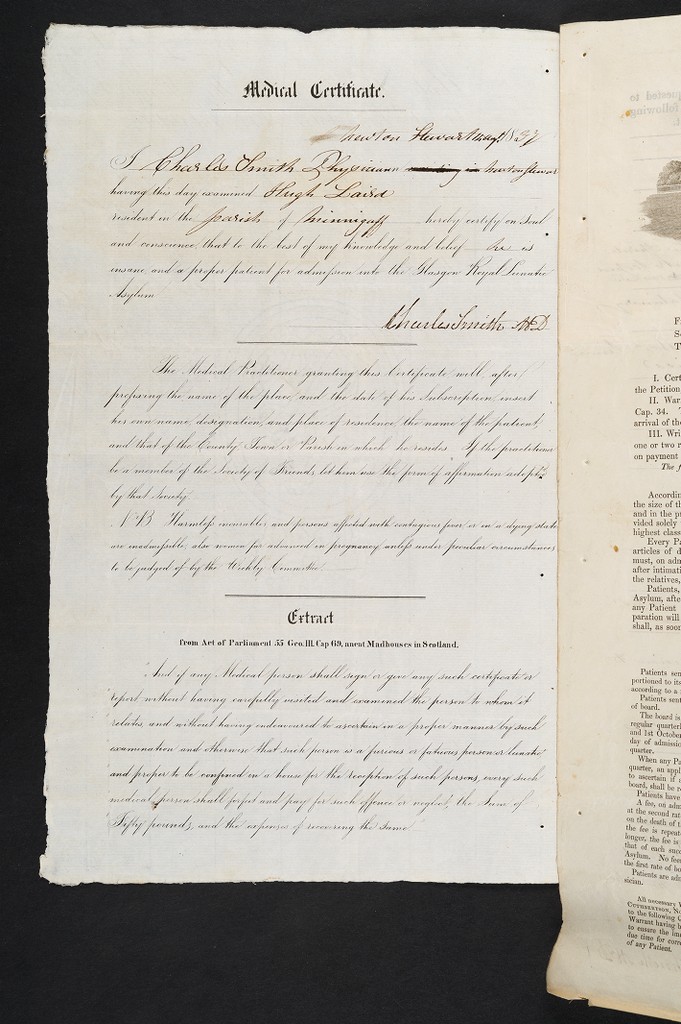 Medical Certificate.
Newton Stewart
I Charles Smith Physician Newton Stewar
having this day examined Hugh Laird
resident in the parish of Minnigaff hereby certify on soul
and conscience, that to the best of my knowledge and belief he is
insane and a proper patient for admission into the Glasgow Royal Lunatic
Asylum
Charles Smith M.D.
The Medical Practitioner granting this Certificate will after
prefixing the name of the place, and the date of his Subscription, insert
his own name, designation, and place of residence, the name of the patient,
and that of the County, Town or Parish in which he resides. If the practitioner
be a member of the Society of Friends, let him use the form of affirmation adopted
by that Society.
N.B. Harmless incurables and persons affected with contagious fever or in a dying state
are inadmissible, also women far advanced in pregnancy, unless under peculiar circumstances
to be judged of by the Weekly Committee
Extract
from Act of Parliament 55 Geo. III. Cap 69, anent Madhouses in Scotland.
"And if any Medical person shall sign or give any such certificate or
report without having carefully visited and examined the person to whom it
relates, and without having endeavoured to ascertain in a proper manner by such
examination and otherwise that such person is a furious or fatuous person or lunatic
and proper to be confined in a house for the reception of such persons, every such
medical person shall forfeit and pay for such offence or neglect, the Sum of
Fifty pounds, and the expenses of recovering the same
I. Cert
the Petition
II. War
Cap. 34.
arrival of the
III. Wri
one or two r
on payment
The f
Accordin
the size of th
and in the pr
vided solely
highest class
Every Pa
articles of d
must, on adm
after intimati
the relatives,
Patients,
Asylum, afte
any Patient
paration will
shall, as soon
Patients sen
portioned to its
according to a
Patients sent
of board.
The board is
regular quarterl
and 1st October
day of admissio
quarter.
When any Pa
quarter, an appl
to ascertain if
board, shall be re
Patients have
A fee, on adm
at the second rat
on the death of t
the fee is repeate
longer, the fee is
that of each succ
Asylum. No fee
the first rate of bo
Patients are adm
sician.
All necessary
to the following
Warrant having b
to ensure the
due time for corr
of any Patient.